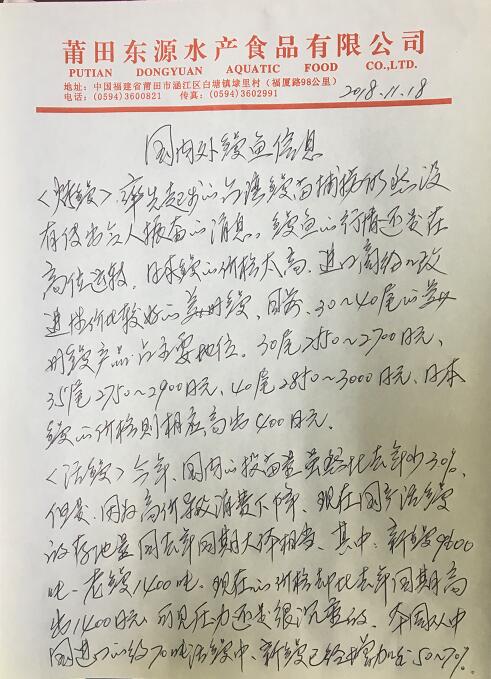 莆田东源水产食品有限公司
PUTIAN DONGYUAN AQUATIC FOOD CO.,LTD.
地址：中国福建省莆田市涵江区白塘镇埭里村（福厦路98公里）
电话：(0594)3600821 传真：(0594)3602991
2018.11.18
国内外鳗鱼信息
<烤鳗> 率先起步的台湾鳗苗捕捞仍然没
有传出令人振奋的消息。鳗鱼的行情还是在
高位运转，日本鳗的价格太高，进口商纷纷改
进性价比较好的美洲鳗，目前，30～40尾的美
洲鳗产品占主要地位。30尾2550～2700日元、
35尾2750～2900日元、40尾2850～3000日元、日本
鳗的价格则相应高出400日元。
<活鳗> 今年，国内的投苗量虽然比去年少30%，
但是，因为高价导致消费下降，现在国产活鳗
的存池量同去年同期大体相当，其中，新鳗9600
吨、老鳗1400吨，现在的价格却比去年同期高
出1400日元，可见压力还是很沉重的，本周从中
国进口的约70吨活鳗中，新鳗已经增加至50～70%。